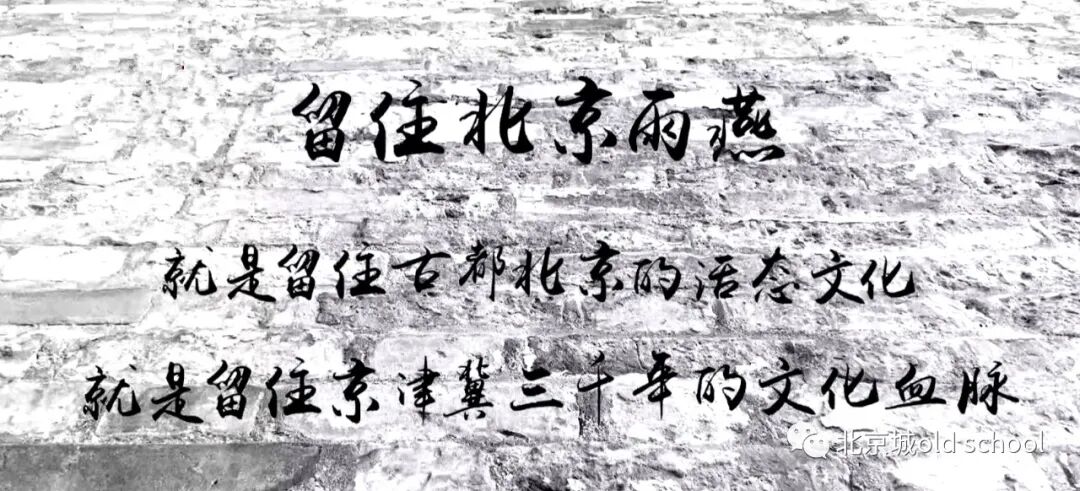 留住北京雨燕
就是留住古都北京的活态文化
就是留住京津冀三千年的文化血脉
北京城old school